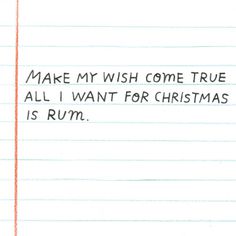 MAKE MY WISH COME TRUE
ALL I WANT FOR CHRISTMAS
IS RUM.